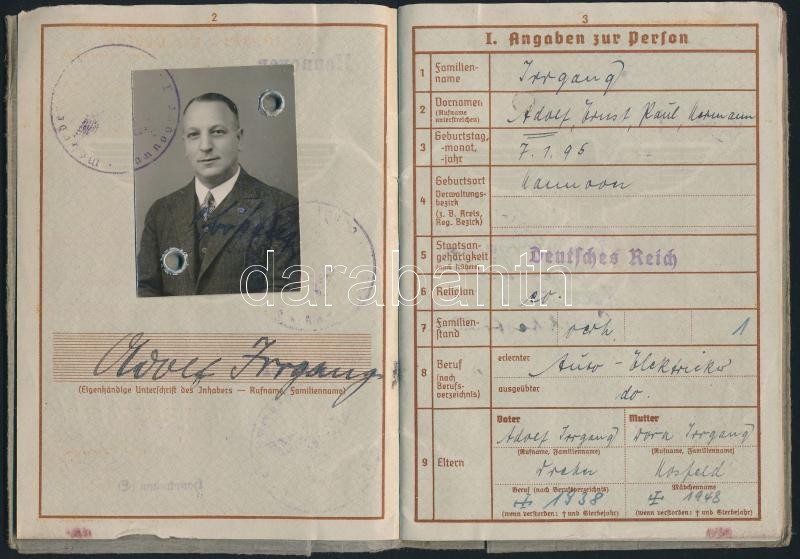 2
Adolf Irrgang
(Eigenhändige Unterschrift des Inhabers — Rufname, Familienname)
3
I. Angaben zur Person
1 Familien-
name
Irrgang
2 Vornamen
(Rufname
unterstreichen)
Adolf, Ernst, Paul, Hermann
3 Geburtstag,
-monat,
-jahr
7. 1. 95
4 Geburtsort
Verwaltungs-
bezirk
(z. B. Kreis,
Reg. Bezirk)
Hannover
5 Staatsan-
gehörigkeit
(auch frühere)
Deutsches Reich
6 Religion
ev.
7 Familien-
stand
verh.
1
8 Beruf
(nach
Berufs-
verzeichnis)
erlernter
Auto-Elektriker
ausgeübter
do.
9 Eltern
Vater
Adolf Irrgang
(Rufname, Familienname)
Dreher
Beruf (nach Berufsverzeichnis)
1938
(wenn verstorben: † und Sterbejahr)
Mutter
Dora Irrgang
(Rufname, Familienname)
Kosfeld
Mädchenname
1943
(wenn verstorben: † und Sterbejahr)
darabanth